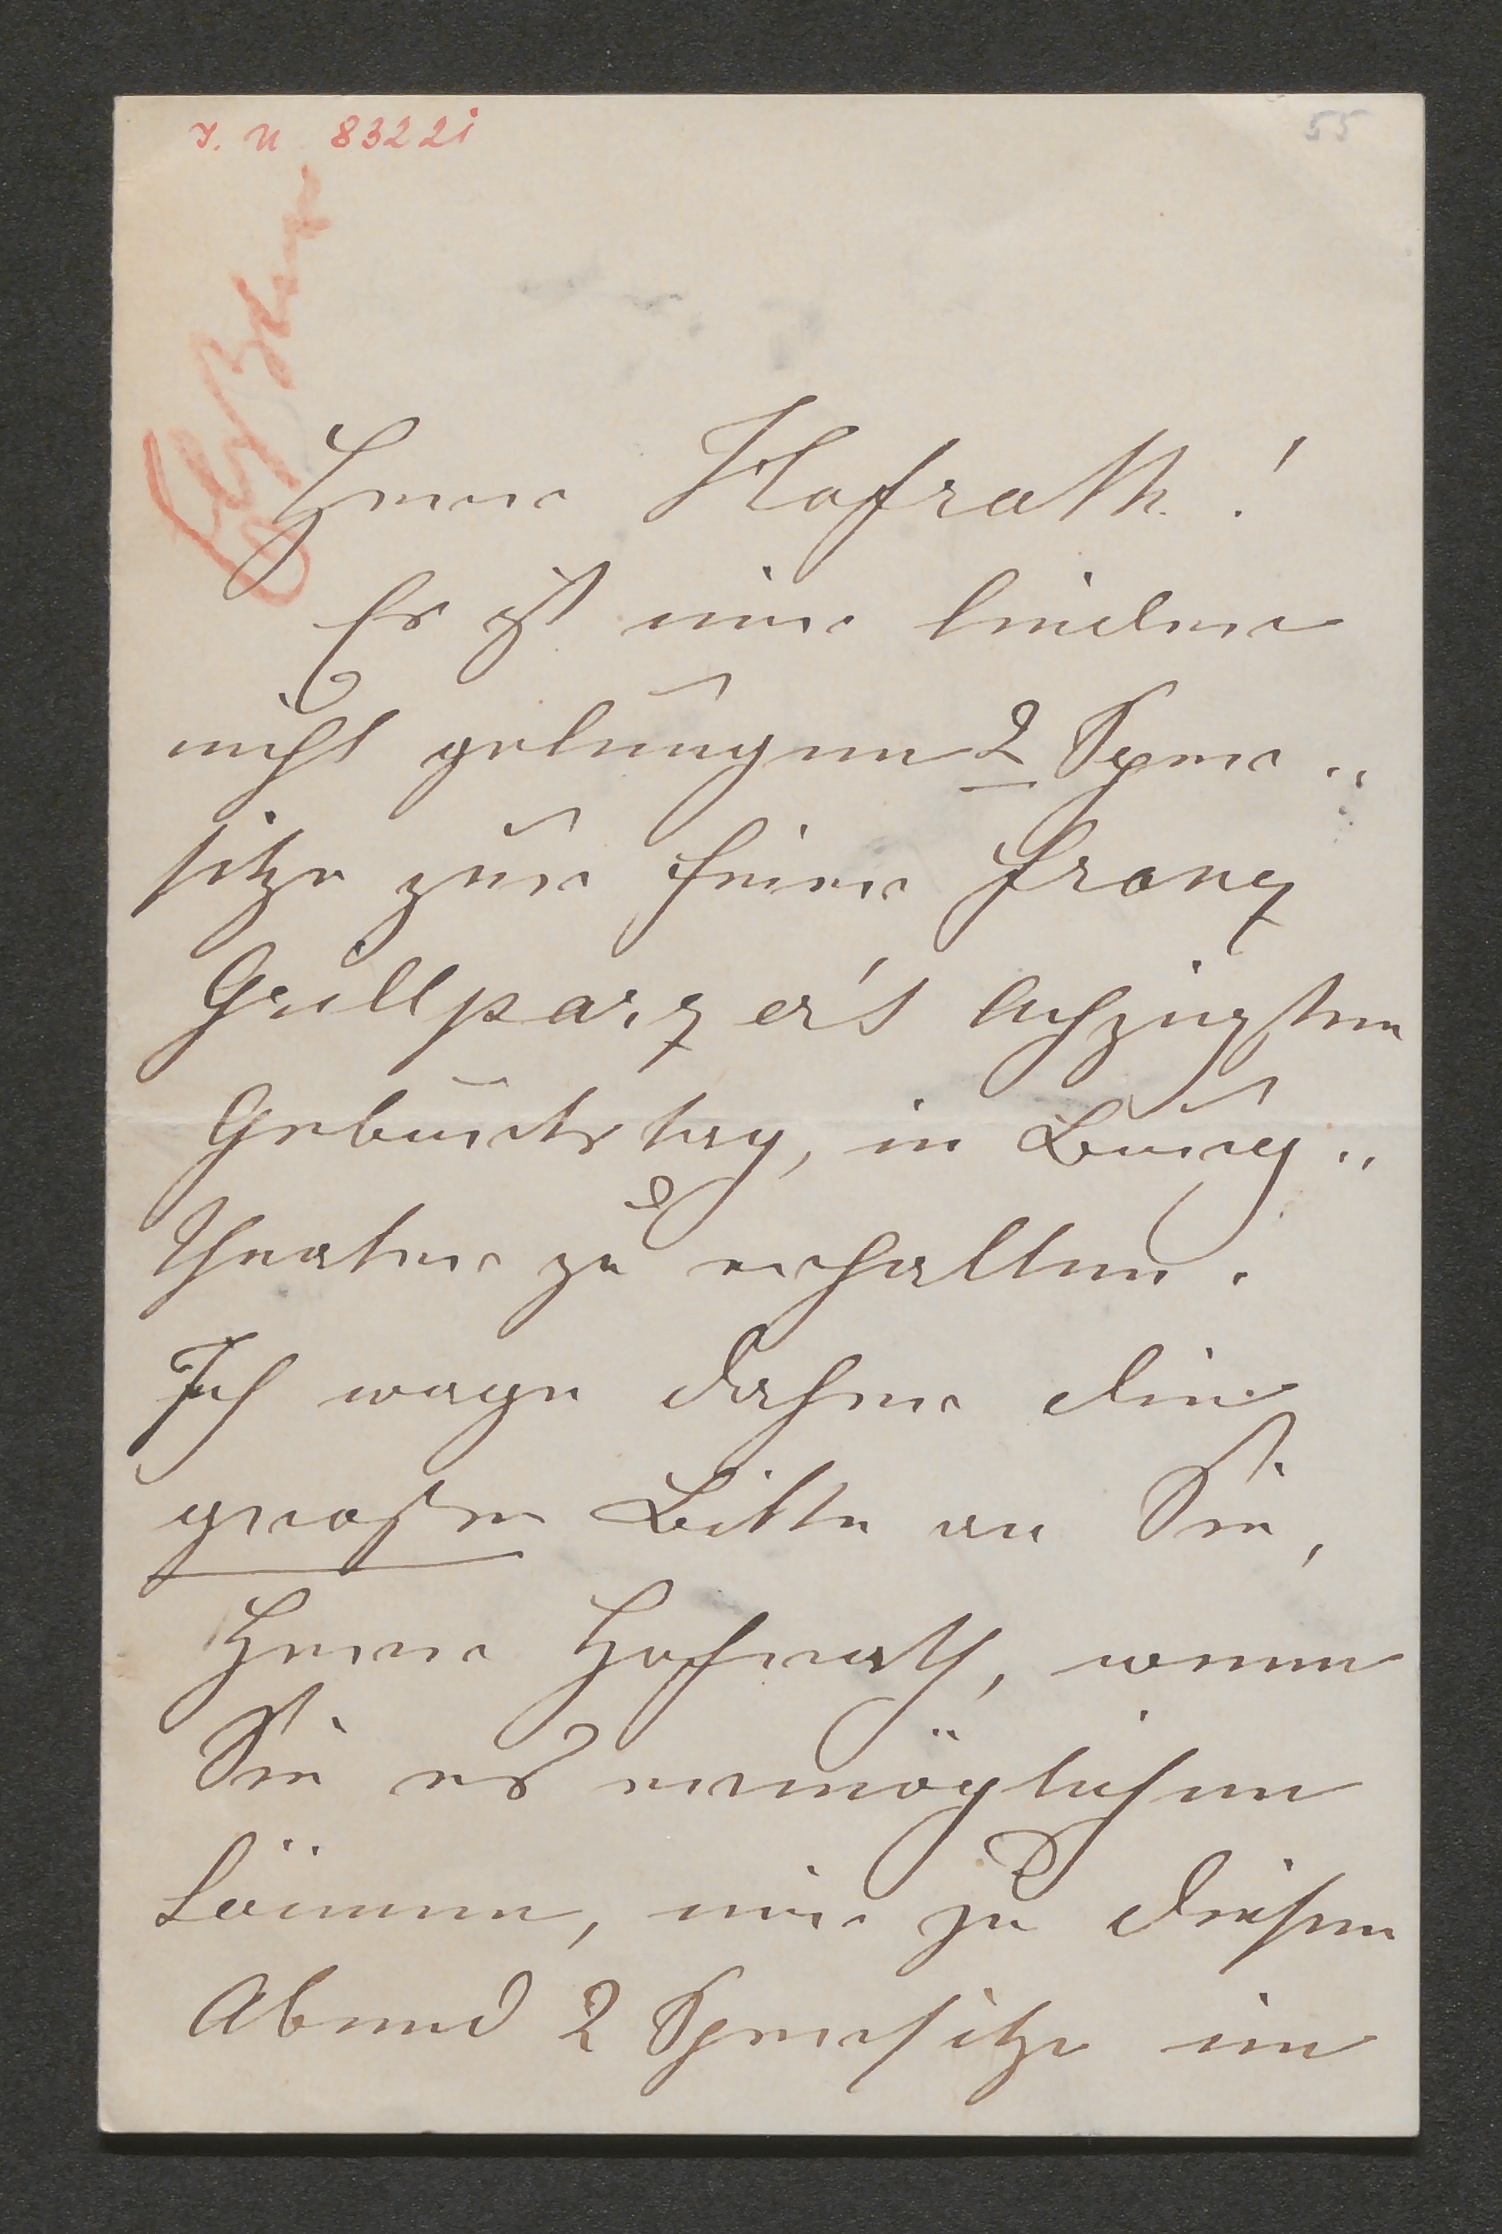 I. N. 83221
55
Herr Hofrath!
Es ist mir leider
nicht gelungen 2 Sperr„
sitze zur Feier Franz
Grillparzer's achzigsten
Geburtstag, in Burg„
theater zu erhalten.
Ich wage daher die
große Bitte an Sie,
Herr Hofrath, wenn
Sie es ermöglichen
können, mir zu diesem
Abend 2 Sperrsitze im